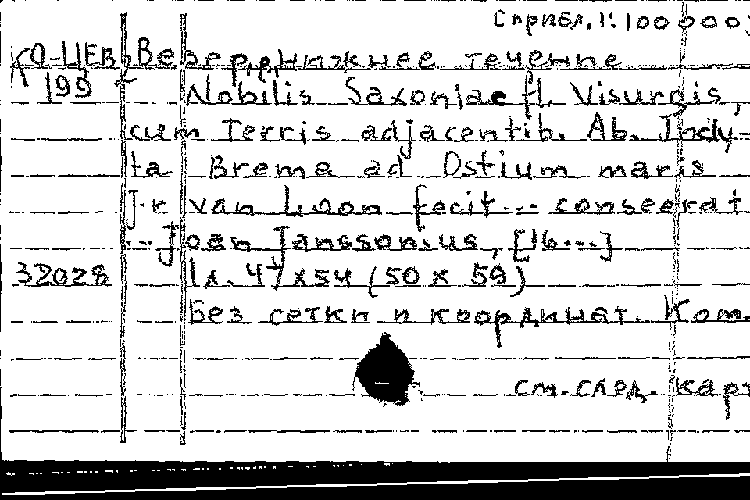 с прибл. 1:100000;
КО-ЦЕВ, Везер, р., нижнее течение
199 Nobilis Saxoniae fl. Visurgis,
cum Terris adjacentib. Ab. Indy-
ta Brema ad Ostium maris
J.r van Loon fecit... conseerat
... Joan Janssonius, [16...]
32028 1 л. 47 х 54 (50 х 59)
Без сетки и координат. Ком.
см. след. карт